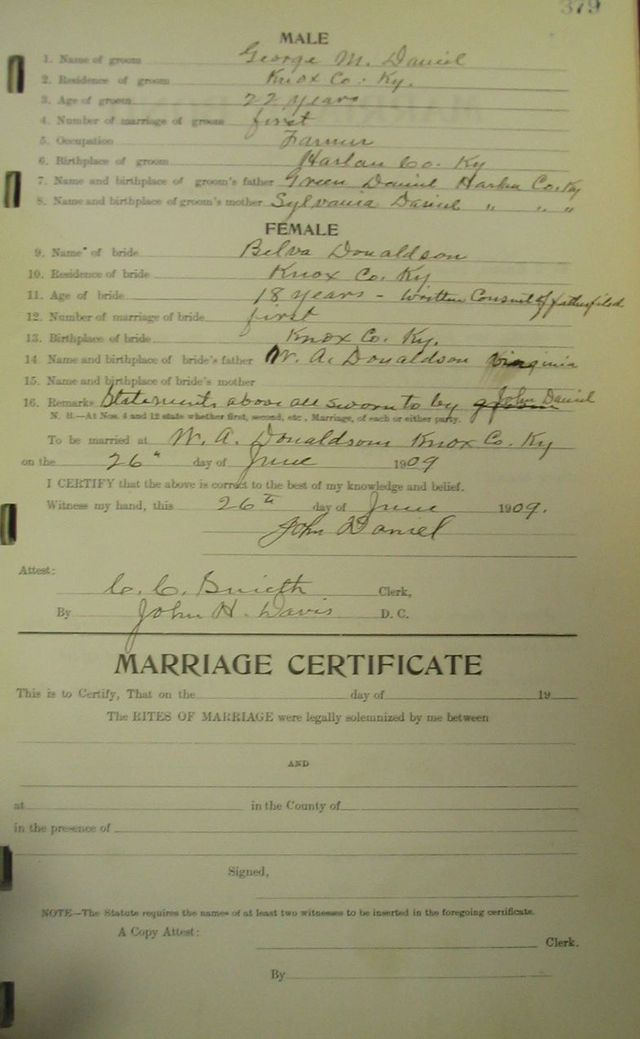 379
MALE
1. Name of groom George M. Daniel
2. Residence of groom Knox Co. Ky.
3. Age of groom 22 years
4. Number of marriage of groom first
5. Occupation Farmer
6. Birthplace of groom Harlan Co. Ky
7. Name and birthplace of groom's father Green Daniel Harlan Co. Ky
8. Name and birthplace of groom's mother Sylvania Daniel " " "
FEMALE
9. Name of bride Belva Donaldson
10. Residence of bride Knox Co. Ky
11. Age of bride 18 years - Written Consent of father filed
12. Number of marriage of bride first
13. Birthplace of bride Knox Co. Ky.
14 Name and birthplace of bride's father W. A. Donaldson Virginia
15. Name and birthplace of bride's mother
16. Remarks Statements above all sworn to by groom John Daniel
N. B.—At Nos. 4 and 12 state whether first, second, etc., Marriage, of each or either party.
To be married at W. A. Donaldsons Knox Co. Ky
on the 26" day of June 1909
I CERTIFY that the above is correct to the best of my knowledge and belief.
Witness my hand, this 26th day of June 1909.
John Daniel
Attest:
C. C. Clerk,
By John H. Davis D. C.
MARRIAGE CERTIFICATE
This is to Certify, That on the day of 19
The RITES OF MARRIAGE were legally solemnized by me between
AND
at in the County of
in the presence of
Signed,
NOTE—The Statute requires the names of at least two witnesses to be inserted in the foregoing certificate.
A Copy Attest:
Clerk.
By